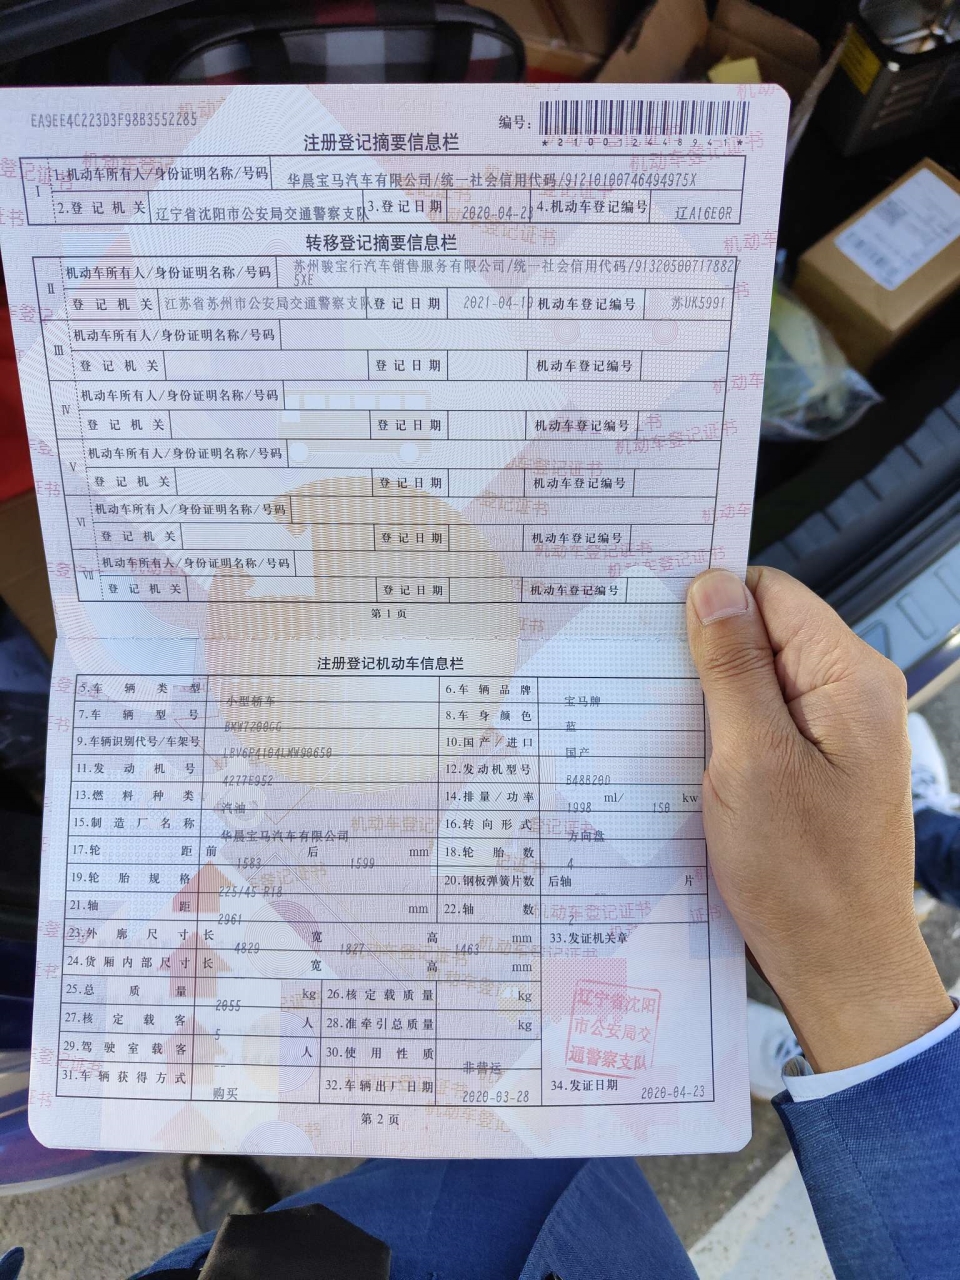 EA9EE4C223D3F98B3552285
编号:
*210012448941*
注册登记摘要信息栏
I 1.机动车所有人/身份证明名称/号码 华晨宝马汽车有限公司/统一社会信用代码/91210100746494975X
2.登记机关 辽宁省沈阳市公安局交通警察支队 3.登记日期 2020-04-23 4.机动车登记编号 辽A16E0R
转移登记摘要信息栏
II 机动车所有人/身份证明名称/号码 苏州骏宝行汽车销售服务有限公司/统一社会信用代码/9132050071788275XE
登记机关 江苏省苏州市公安局交通警察支队 登记日期 2021-04-19 机动车登记编号 苏UK5991
III 机动车所有人/身份证明名称/号码
登记机关 登记日期 机动车登记编号
IV 机动车所有人/身份证明名称/号码
登记机关 登记日期 机动车登记编号
V 机动车所有人/身份证明名称/号码
登记机关 登记日期 机动车登记编号
VI 机动车所有人/身份证明名称/号码
登记机关 登记日期 机动车登记编号
VII 机动车所有人/身份证明名称/号码
登记机关 登记日期 机动车登记编号
第1页
注册登记机动车信息栏
5.车辆类型 小型轿车 6.车辆品牌 宝马牌
7.车辆型号 8.车身颜色 蓝
9.车辆识别代号/车架号 10.国产/进口 国产
11.发动机号 4277E952 12.发动机型号 B48B20D
13.燃料种类 汽油 14.排量/功率 1998 ml/ 150 kw
15.制造厂名称 华晨宝马汽车有限公司 16.转向形式 方向盘
17.轮距 前 1583 后 1599 mm 18.轮胎数 4
19.轮胎规格 225/45 R18 20.钢板弹簧片数 后轴 -- 片
21.轴距 2961 mm 22.轴数 2
23.外廓尺寸 长 4829 宽 1827 高 1463 mm 33.发证机关章
24.货厢内部尺寸 长 宽 高 mm
25.总质量 2055 kg 26.核定载质量 kg
27.核定载客 5 人 28.准牵引总质量 kg
29.驾驶室载客 -- 人 30.使用性质 非营运
31.车辆获得方式 购买 32.车辆出厂日期 2020-03-28 34.发证日期 2020-04-23
辽宁省沈阳
市公安局交
通警察支队
第2页